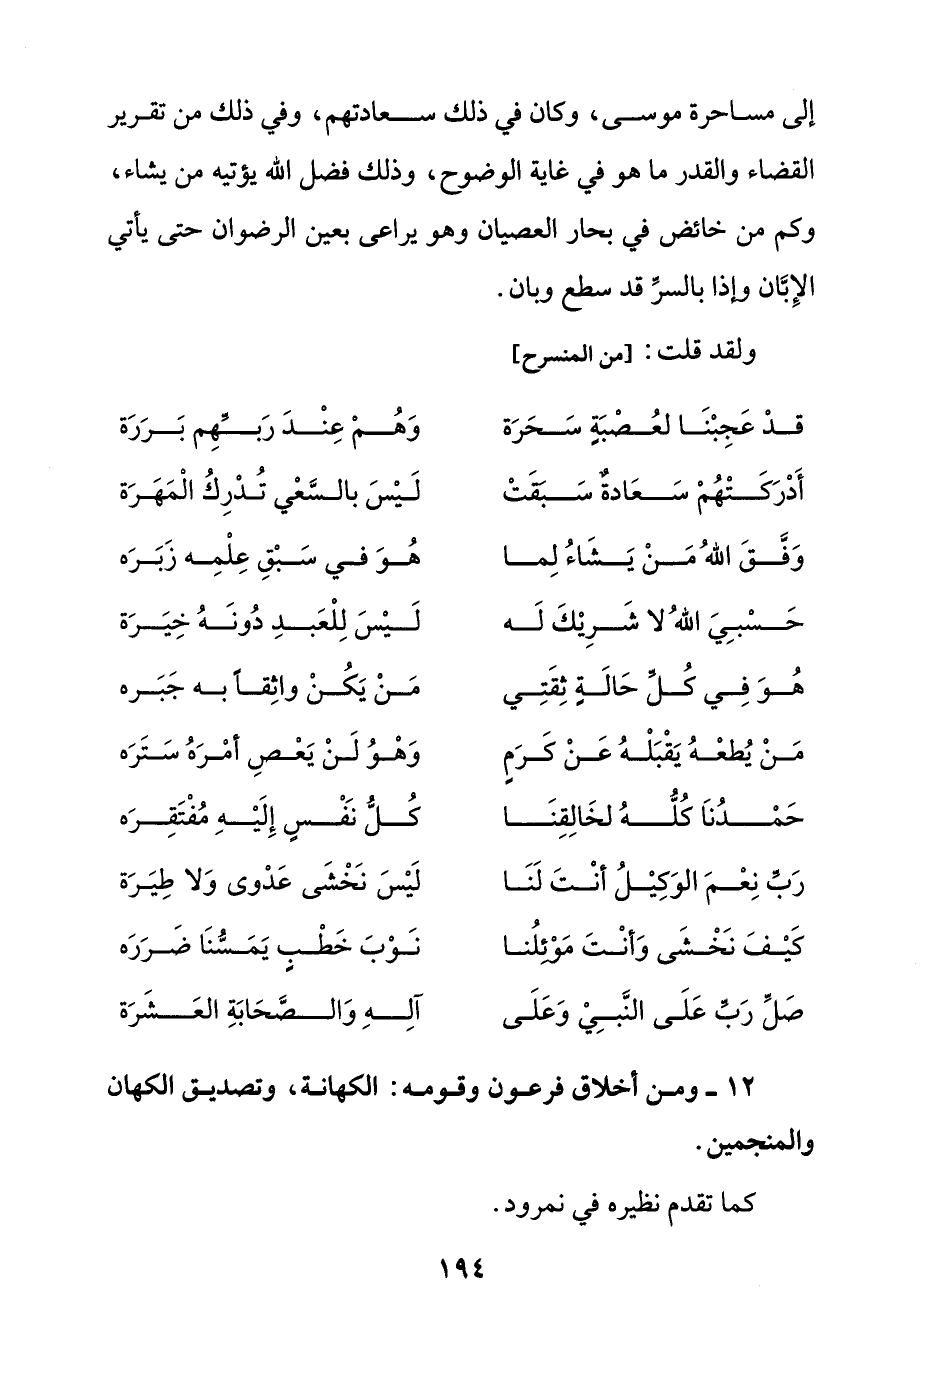 إلى مساحرة موسى، وكان في ذلك سعادتهم، وفي ذلك من تقرير
القضاء والقدر ما هو في غاية الوضوح، وذلك فضل الله يؤتيه من يشاء،
وكم من خائض في بحار العصيان وهو يراعى بعين الرضوان حتى يأتي
الإبَّان وإذا بالسرِّ قد سطع وبان.
ولقد قلت: [من المنسرح]
قَدْ عَجِبْنَا لعُصْبَةٍ سَحَرَة وَهُمْ عِنْدَ رَبِّهِم بَرَرَة
أَدْرَكَتْهُمْ سَعَادةٌ سَبَقَتْ لَيْسَ بالسَّعْي تُدْرِكُ الْمَهَرَة
وَفَّقَ اللهُ مَنْ يَشَاءُ لِما هُوَ في سَبْقِ عِلْمِه زَبَرَه
حَسْبِيَ اللهُ لا شَرِيْكَ لَه لَيْسَ لِلْعَبدِ دُونَهُ خِيَرَة
هُوَ فِي كُلِّ حَالَةٍ ثِقَتِي مَنْ يَكُنْ واثِقاً به جَبَره
مَنْ يُطعْهُ يَقْبَلْهُ عَنْ كَرَمٍ وَهْوُ لَنْ يَعْصِ أمْرَهُ سَتَرَه
حَمْدُنَا كُلُّهُ لخَالِقِنَا كُلُّ نَفْسٍ إِلَيْهِ مُفْتَقِرَه
رَبِّ نِعْمَ الوَكِيْلُ أنْتَ لَنَا لَيْسَ نَخْشَى عَدْوى وَلا طِيَرَة
كَيْفَ نَخْشَى وَأنْتَ مَوْئِلُنا نَوْبَ خَطْبٍ يَمَسُّنَا ضَرَرَه
صَلِّ رَبِّ عَلَى النَّبِيْ وَعَلَى آلِهِ وَالصَّحَابَةِ العَشَرَة
١٢ - ومن أخلاق فرعون وقومه: الكهانة، وتصديق الكهان
والمنجمين.
كما تقدم نظيره في نمرود.
١٩٤